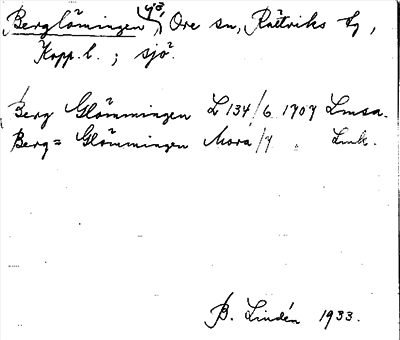 Berglömingen, yö, Ore sn, Rättviks tg,
Kopp. l. ; sjö.
Berg Glömmingen L 134/6 1707 Lmsa.
Berg= Glömmingen Mora/7 Lmk.
B. Lindén 1933.